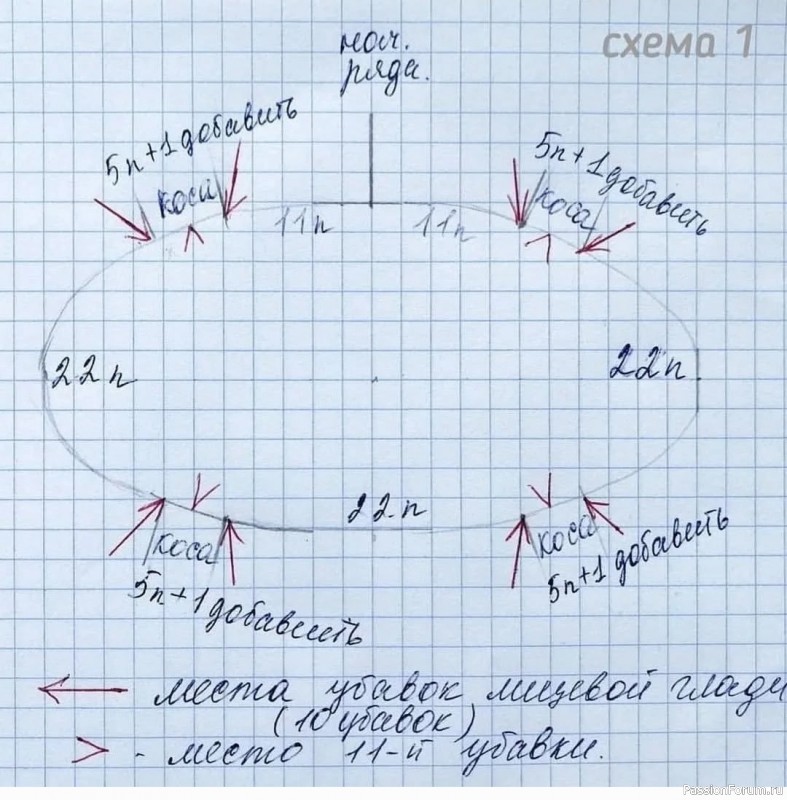 схема 1
нач.
ряда.
5п+1 добавить
коса
5п+1 добавить
коса
11п
11п
22п
22п.
22.п
коса
5п+1 добавить
коса
5п+1 добавить
места убавок лицевой глади
(10 убавок)
- место 11-й убавки.
PassionForum.ru